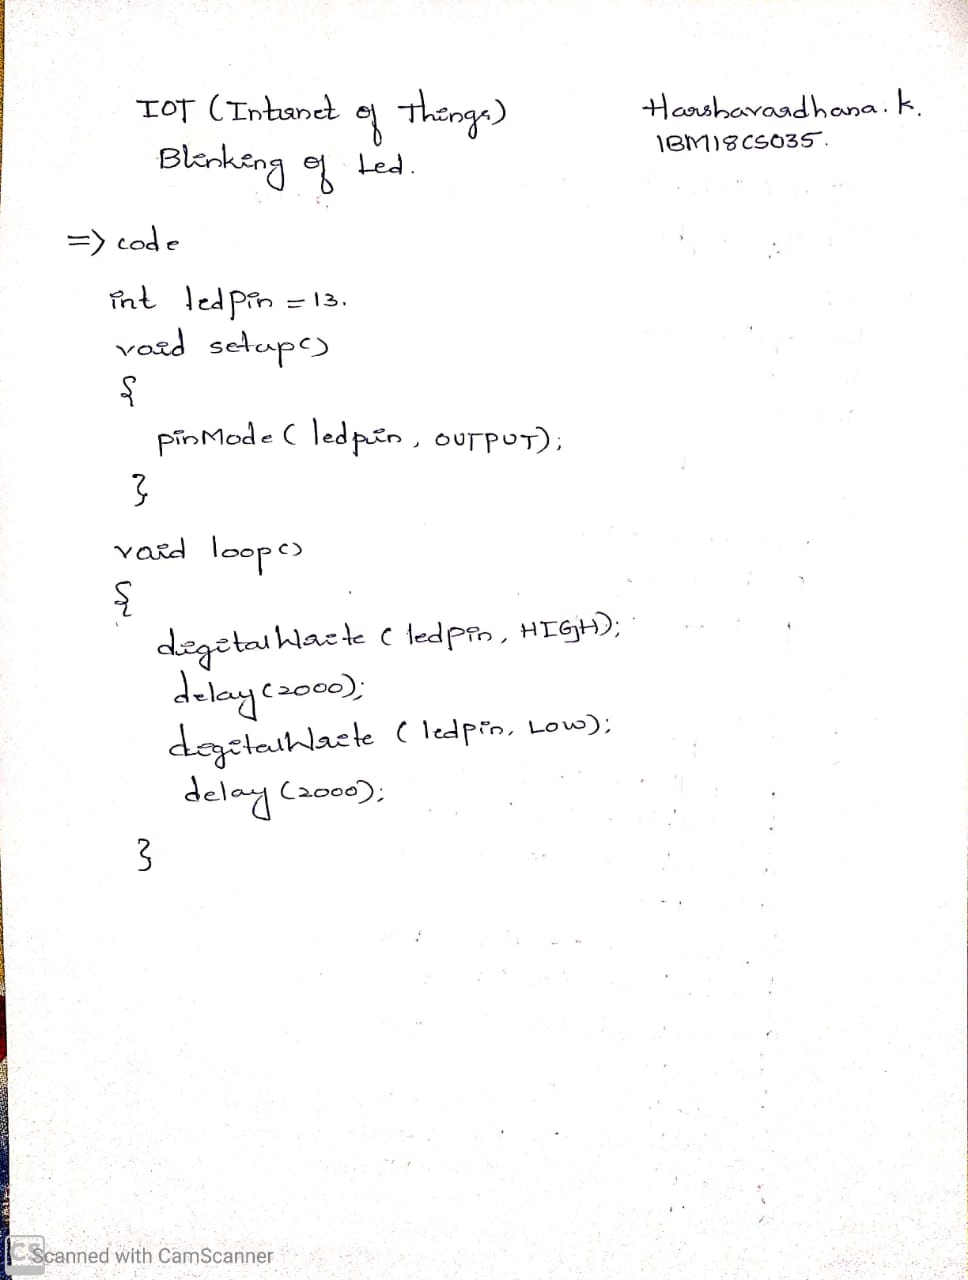 IOT (Internet of Things)
Blinking of Led.
Harshavardhana.K.
1BM18CS035.
=> code
int ledpin = 13.
void setup()
{
pinMode ( ledpin, OUTPUT);
}
void loop()
{
digitalWrite ( ledpin, HIGH);
delay (2000);
digitalWrite ( ledpin, LOW);
delay (2000);
}
CS Scanned with CamScanner